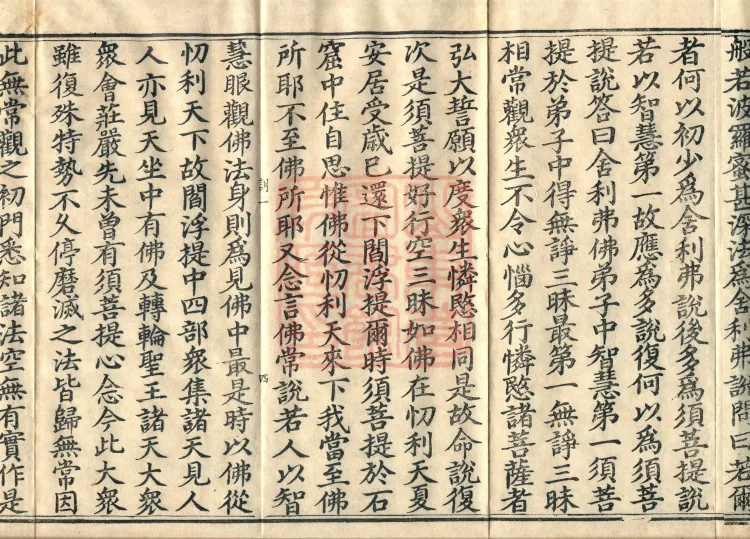 般若波羅蜜甚深法爲舍利弗說問曰若爾
者何以初少爲舍利弗說後多爲須菩提說
若以智慧第一故應爲多說復何以爲須菩
提說答曰舍利弗佛弟子中智慧第一須菩
提於弟子中得無諍三昧最第一無諍三昧
相常觀衆生不令心惱多行憐愍諸菩薩者
弘大誓願以度衆生憐愍相同是故命說復
次是須菩提好行空三昧如佛在忉利天夏
安居受歲已還下閻浮提爾時須菩提於石
窟中住自思惟佛從忉利天來下我當至佛
所耶不至佛所耶又念言佛常說若人以智
慧眼觀佛法身則爲見佛中最是時以佛從
忉利天下故閻浮提中四部衆集諸天見人
人亦見天坐中有佛及轉輪聖王諸天大衆
衆會莊嚴先未曾有須菩提心念今此大衆
雖復殊特勢不久停磨滅之法皆歸無常因
此無常觀之初門悉知諸法空無有實作是